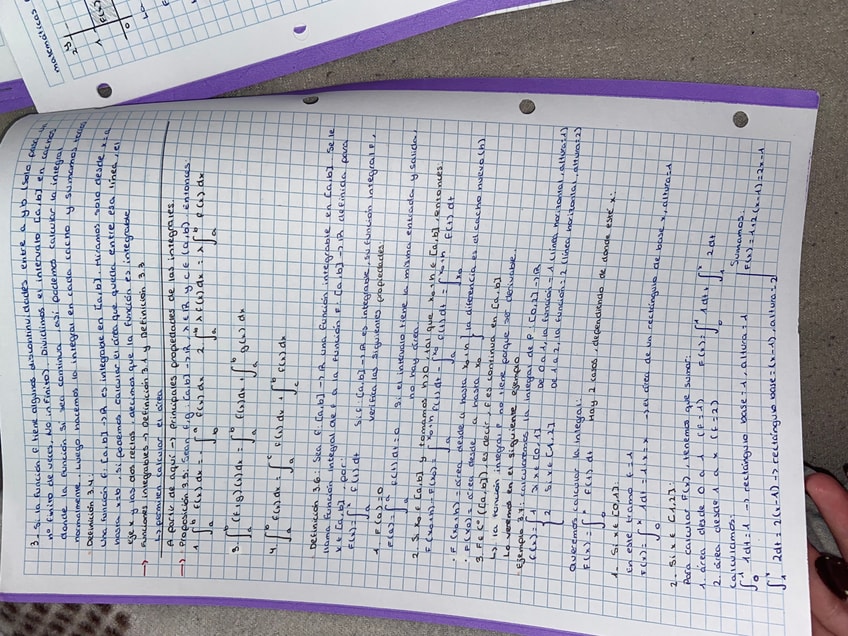 3. Si la función f tiene algunas discontinuidades entre a y b (solo para un
nº finito de veces, no infinito). Dividimos el intervalo [a,b] en cachos
donde la función sí sea continua, así podemos calcular la integral
normalmente. Luego hacemos la integral en cada cacho y sumamos
Definición 3.4:
Una función f: [a,b] -> ℝ es integrable en [a,b], miramos solo desde x=a
hasta x=b, si podemos calcular el área que queda entre esa línea, el
eje x y las dos rectas, decimos que la función es integrable
→ Funciones integrables → Definición 3.1 y Definición 3.3
↳ permiten calcular el área
A partir de aquí → principales propiedades de las integrales.
→ Proposición 3.5: Sean f,g: [a,b] -> ℝ, λ ∈ ℝ y c ∈ (a,b), entonces:
1. ∫_a^b f(x) dx = - ∫_b^a f(x) dx 2. ∫_a^b λ f(x) dx = λ ∫_a^b f(x) dx
3. ∫_a^b (f+g)(x) dx = ∫_a^b f(x) dx + ∫_a^b g(x) dx
4. ∫_a^b f(x) dx = ∫_a^c f(x) dx + ∫_c^b f(x) dx
Definición 3.6: Sea f: [a,b] -> ℝ una función integrable en [a,b]. Se le
llama función integral de f a la función F: [a,b] -> ℝ definida para
x ∈ [a,b] por
F(x) = ∫_a^x f(t) dt Si f: [a,b] -> ℝ es integrable, su función integral F,
verifica las siguientes propiedades:
1. F(a) = 0
F(a) = ∫_a^a f(t) dt = 0 Si el intervalo tiene la misma entrada y salida,
no hay área.
2. Si x₀ ∈ [a,b] y tomamos h>0, tal que x₀+h ∈ [a,b], entonces:
F(x₀+h) - F(x₀) = ∫_a^{x₀+h} f(t) dt - ∫_a^{x₀} f(t) dt = ∫_{x₀}^{x₀+h} f(t) dt
· F(x₀+h) = área desde a hasta x₀+h } la diferencia es el cacho nuevo (h)
· F(x₀) = área desde a hasta x₀
3. F ∈ C⁰([a,b]), es decir, F es continua en [a,b]
↳ la función integral F no tiene porque ser derivable.
Lo veremos en el siguiente ejemplo.
Ejemplo 3.7: calcularemos la integral de f: [0,2] -> ℝ
f(x) = { 1 Si x ∈ [0,1] De 0 a 1, la función = 1 (línea horizontal, altura=1)
2 Si x ∈ [1,2] De 1 a 2, la función = 2 (línea horizontal, altura=2)
Queremos calcular la integral:
F(x) = ∫_0^x f(t) dt Hay 2 casos, dependiendo de donde esté x:
1- Si x ∈ [0,1]:
En este tramo f=1
F(x) = ∫_0^x 1 dt = 1·x = x → el área de un rectángulo de base x, altura=1
2- Si x ∈ [1,2]:
Para calcular F(x), tenemos que sumar:
1. área desde 0 a 1 (f=1) F(x) = ∫_0^1 1 dt + ∫_1^x 2 dt
2. área desde 1 a x (f=2)
Calculamos:
∫_0^1 1 dt = 1 → rectángulo base=1, altura=1 Sumamos:
∫_1^x 2 dt = 2(x-1) → rectángulo base=(x-1), altura=2 F(x) = 1+2(x-1) = 2x-1
matemáticos